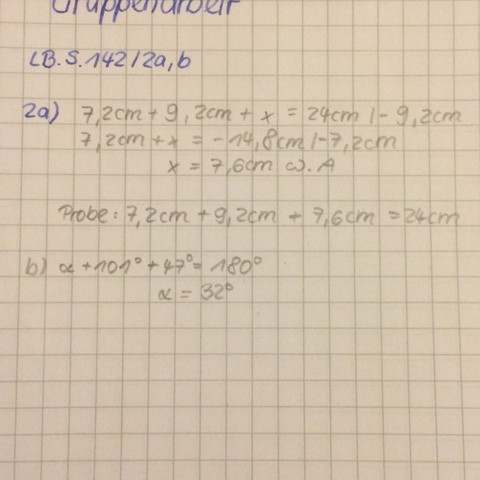 Gruppenarbeit
LB.S.142/2a,b
2a) 7,2cm + 9,2cm + x = 24cm |- 9,2cm
7,2cm + x = - 14,8cm |-7,2cm
x = 7,6cm w.A
Probe: 7,2cm + 9,2cm + 7,6cm = 24cm
b) α + 101° + 47° = 180°
α = 32°